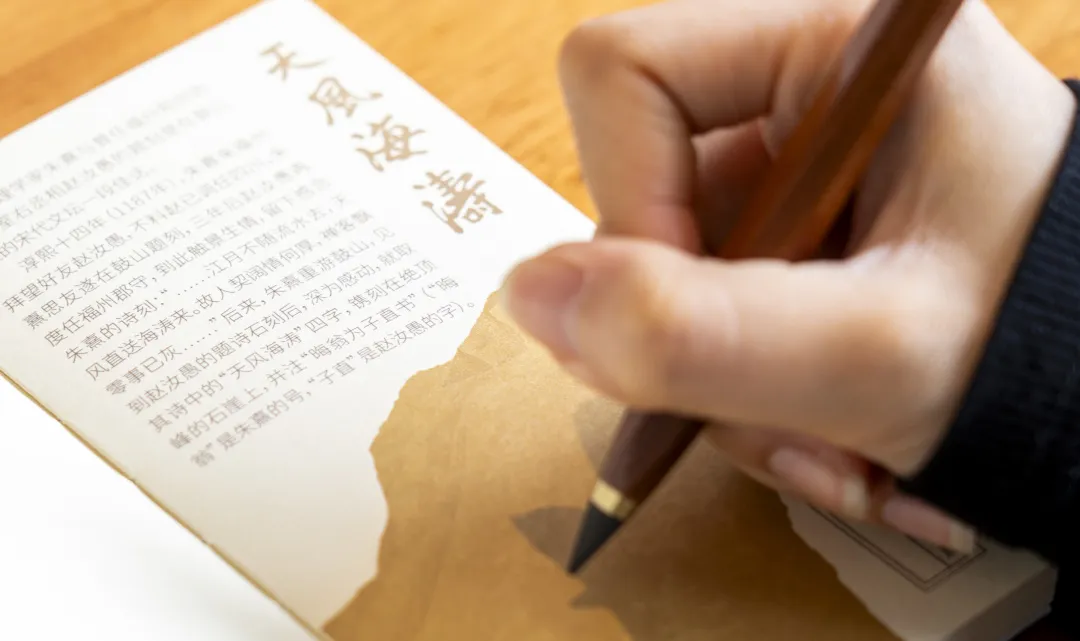 天風海濤
的宋代文坛一段佳话。
淳熙十四年（1187年），朱熹来福州
拜望好友赵汝愚，不料赵已调任四川，朱
熹思友遂在鼓山题刻，三年后赵汝愚再
度任福州郡守，到此触景生情，留下感念
朱熹的诗刻：“……江月不随流水去，天
风直送海涛来。故人契阔情何厚，禅客飘
零事已灰……”后来，朱熹重游鼓山，见
到赵汝愚的题诗石刻后，深为感动，就取
其诗中的“天风海涛”四字，镌刻在绝顶
峰的石崖上，并注“晦翁为子直书”（“晦
翁”是朱熹的号，“子直”是赵汝愚的字）。